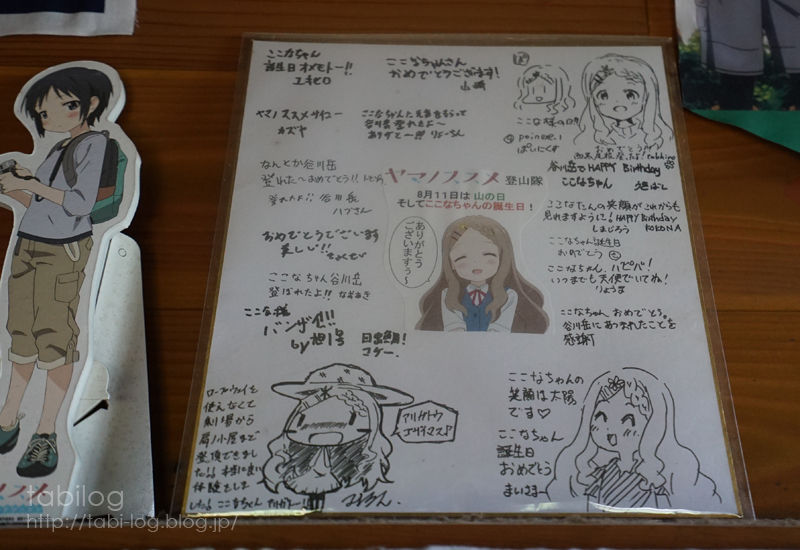 ここなちゃん
誕生日オメトー!!
ユキヒロ
ここなちゃんさん
おめでとうございます!
山崎
ヤマノススメサイコー
カズヤ
ここなちゃんた元気をもらって
谷川岳登れたよ〜
ありがと〜!!! りょーちん
ここな様の日!!
poinexe.1
ぱいにくす
おめでとう
谷川岳でHAPPY Birthday
ここなちゃん
なんとか谷川岳
登れた〜おめでとう!!
登れたよ!! 谷川岳
ハブさん
おめでとうございます
美しい!!
ここなちゃん谷川岳
登ばれたよ!! なおあき
ここな様
バンザイ!!!
ヤマノススメ 登山隊
8月11日は 山の日
そしてここなちゃんの誕生日!
ありがとう
ございますぅ〜
ここなたんの笑顔がこれからも
見れますように! HAPPY Birthday
しまじろう KOKONA
ここなちゃん誕生日
おめでとう
ここなちゃん、ハピバ!
いつまでも天使でいてね!
りょうま
ここなちゃん、おめでとう。
谷川岳にあつまれたことを
感謝!
ロープウェイを
使えなくて
肩ノ小屋まで
登頂できまし
た!! 本当に良い
体験をしま
した!! ここなちゃん
アリガトウ
ゴザイマス♪
ここなちゃんの
笑顔は太陽
です♡
ここなちゃん
誕生日
おめでとう
まいさまー
ヤマノススメ
tabilog
http://tabi-log.blog.jp/